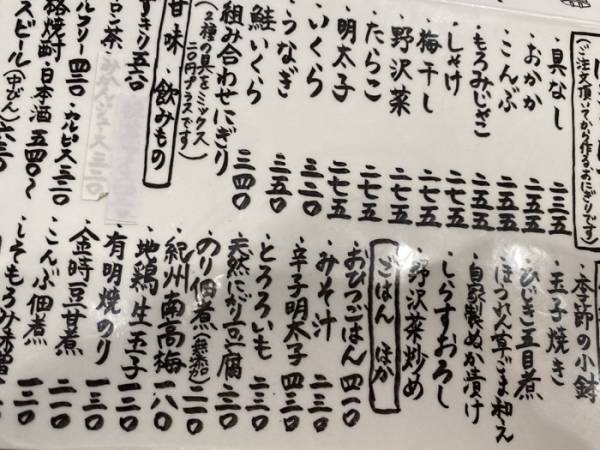 (ご注文頂いてから作るおにぎりです)
・具なし 二三五
・おかか 二五五
・こんぶ 二五五
・もろみじゃこ 二五五
・しゃけ 二五五
・梅干し 二五五
・野沢菜 二七五
・たらこ 二七五
・明太子 二七五
・いくら 三二〇
・うなぎ 三五〇
・鮭いくら 三四〇
組み合わせにぎり
(2種の具をミックス
二〇円プラスです)
甘味 飲みもの
すきり 五六〇
ロン茶
ルフリー 四三〇 カルピス 三二〇
格焼酎・日本酒 五四〇〜
スビール(中びん) 六三〇
・季節の小鉢
・玉子焼き
・ひじき五目煮
・ほうれん草ごま和え
・自家製ぬか漬け
・しらすおろし
・野沢菜炒め
ごはん ほか
・おひつごはん 四一〇
・みそ汁 二三〇
・辛子明太子 四三〇
・とろろいも 二三〇
・天然にがり豆腐 二三〇
・のり佃煮(無添加) 二一〇
・紀州南高梅 一八〇
・地鶏生玉子 一三〇
・有明焼のり 一三〇
・金時豆甘煮 二一〇
・こんぶ佃煮 一二〇
・しそもろみ味噌